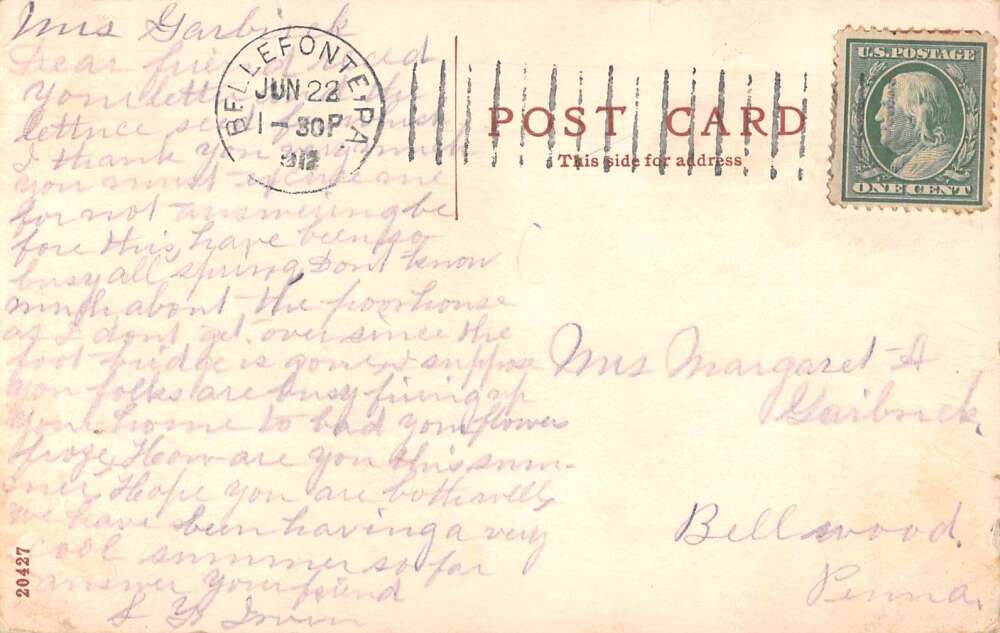 Mrs Garbrick
Dear friend
your letter
lettuce seed
I thank you very much
you must excuse me
for not answering be
fore this, have been so
busy all spring, Dont know
much about the poorhouse
as I dont get over since the
foot bridge is gone, I suppose
you folks are busy fixing up
your home to bad your flowers
froze, How are you this sum-
mer, Hope you are both well,
we have been having a very
cool summer so far
answer your friend
Irvin
BELLEFONTE, PA.
JUN 22
1-30P
1912
POST CARD
This side for address
U.S. POSTAGE
ONE CENT
Mrs Margaret A
Garbrick,
Bellwood,
Penna,
20427